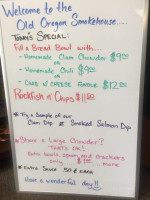 Welcome to the
Old Oregon Smokehouse...
Today's Special:
Fill a Bread Bowl with...
- Homemade Clam Chowder $9.00
or
- Homemade Chili $9.00
or
- Chili n' Cheese $12.00
Rockfish n' Chips $11.00
* Try a Sample of our
Clam Dip & Smoked Salmon Dip
* Share a Large Chowder?
THAT'S OK!
Extra bowls, spoon and crackers
only $1.00 more
* Extra Sauce 50¢ each
Have a wonderful day!!